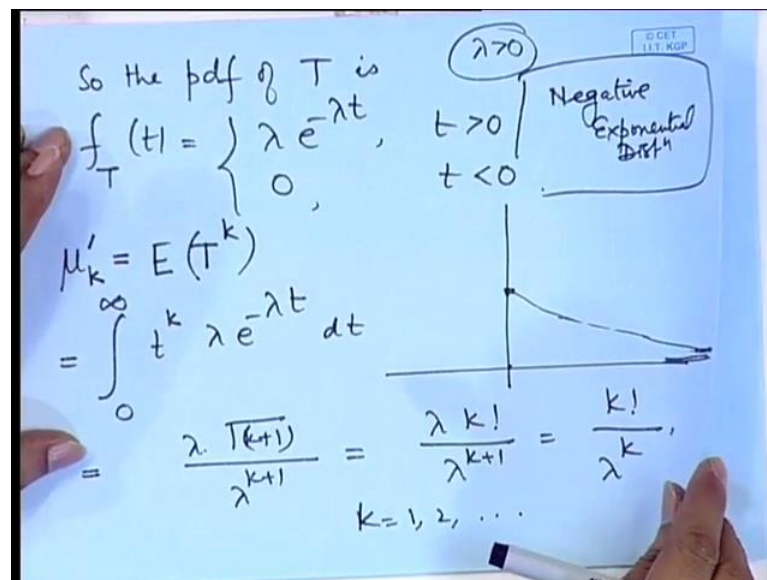 λ>0
© CET
I.I.T. KGP
So the pdf of T is
f_T (t) = { λ e^{-λt}, t > 0
0, t < 0
Negative
Exponential
Distⁿ
μ'_k = E (T^k)
= ∫_0^∞ t^k λ e^{-λt} dt
= λ. Γ(k+1) / λ^{k+1} = λ k! / λ^{k+1} = k! / λ^k ,
k = 1, 2, ...